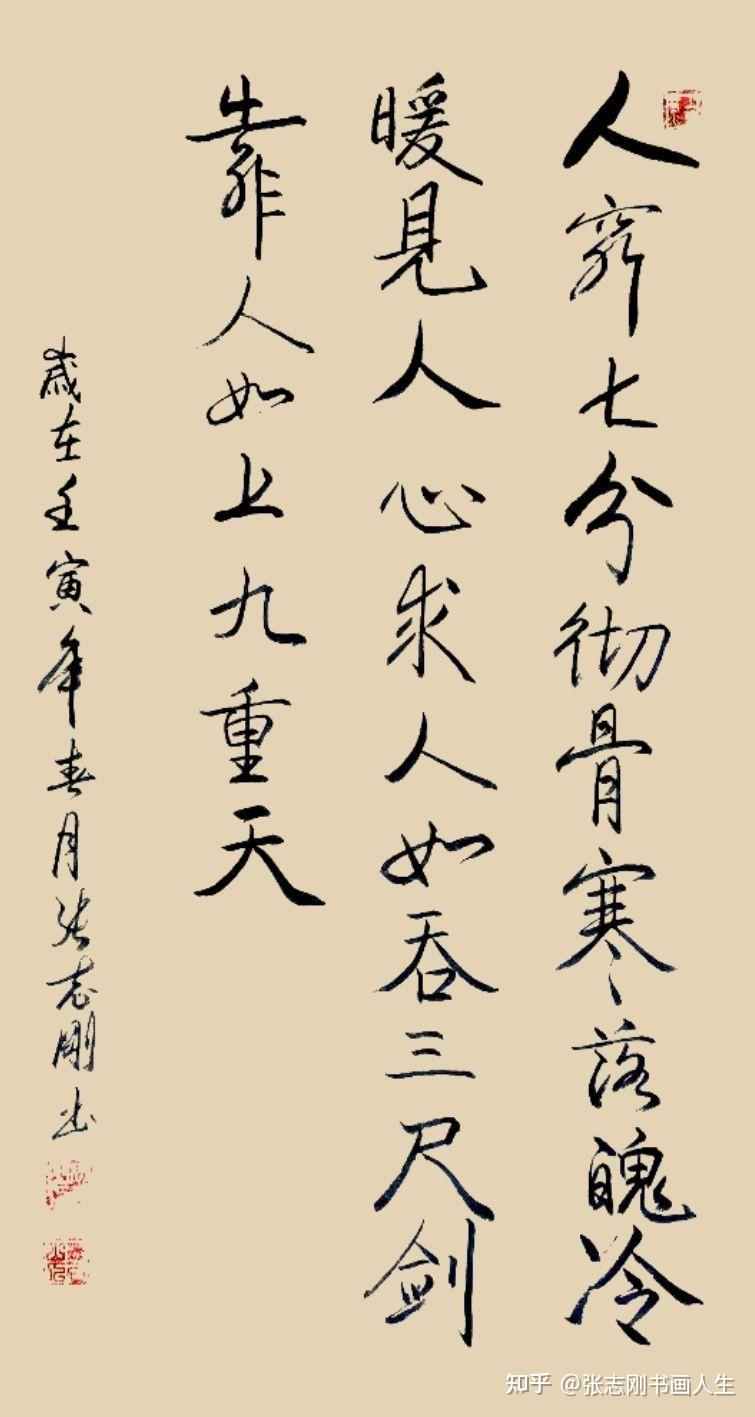 人穷七分彻骨寒落魄冷
暖见人心求人如吞三尺剑
靠人如上九重天
歲在壬寅年春月张志刚书
知乎 @张志刚书画人生